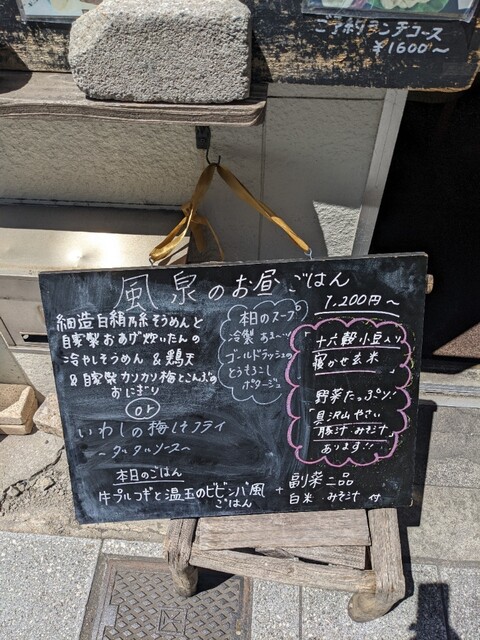 ご予約ランチコース
¥1600〜
風泉のお昼ごはん
1,200円〜
細造白絹乃糸そうめんと
自家製おあげ炊いたんの
冷やしそうめん & 鶏天
& 自家製カリカリ梅とこんぶの
おにぎり
or
いわしの梅しそフライ
〜タルタルソース〜
本日のごはん
牛プルコギと温玉のビビンバ風
ごはん
本日のスープ
冷製 あま〜い
ゴールドラッシュの
とうもろこし
ポタージュ
十六穀小豆入り
寝かせ玄米
野菜たっぷり!
「具沢山やさい
豚汁みそ汁
あります!!
+ 副菜二品
白米 みそ汁 付